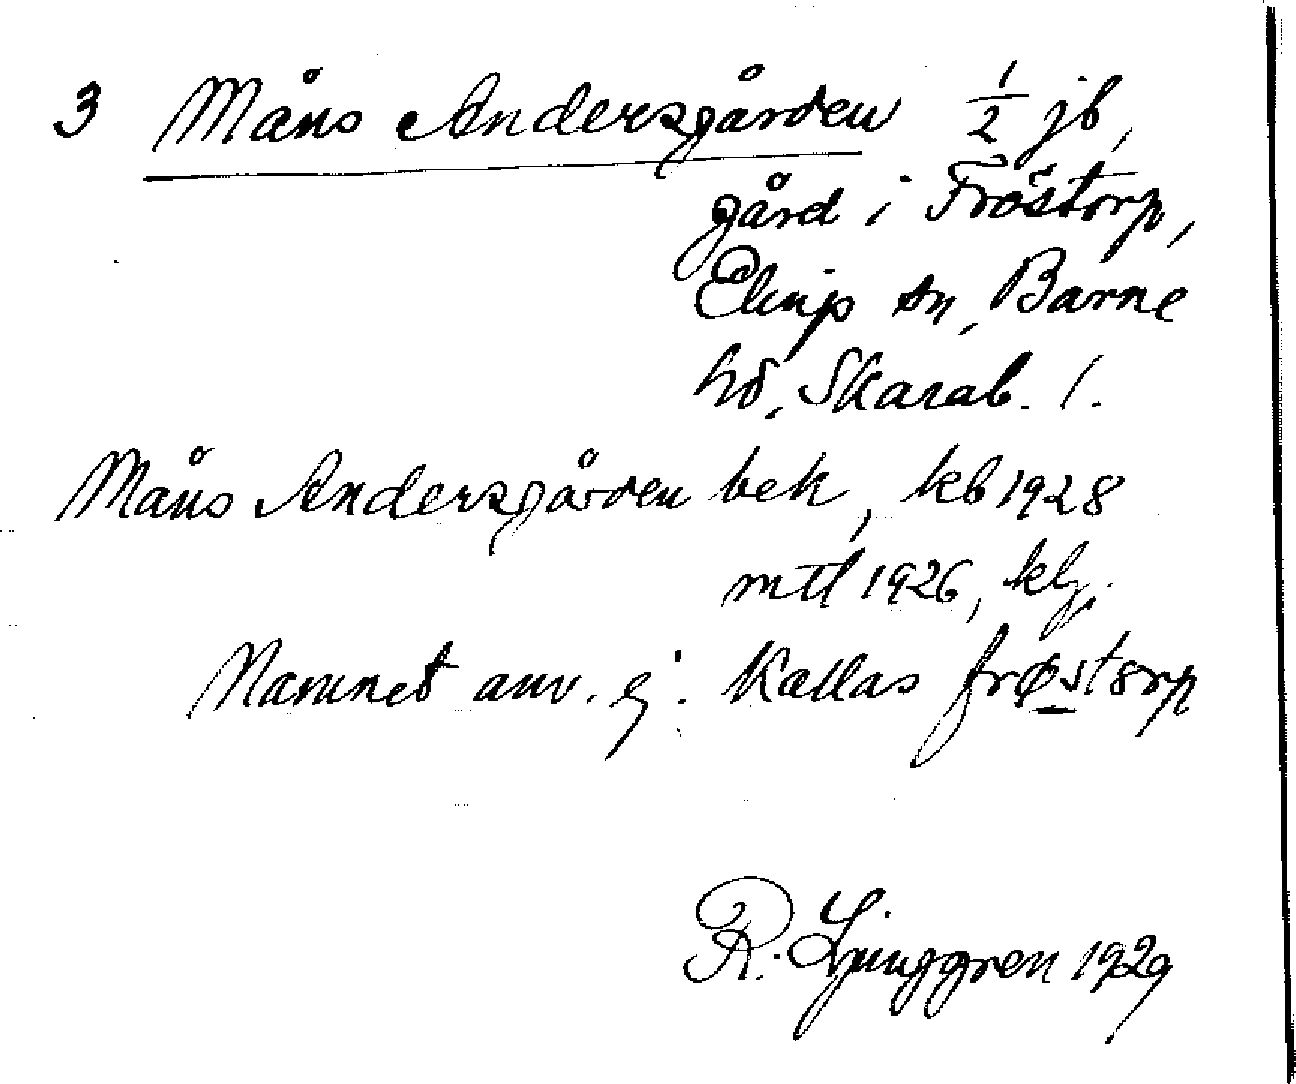 3 Måns Andersgården 1/2 jb,
gård i Fröstorp,
Eling sn, Barne
hd, Skarab. l.
Måns Andersgården bek, kb 1928
mtl 1926, klj.
Namnet anv. ej: kallas frøstorp
R. Ljunggren 1929